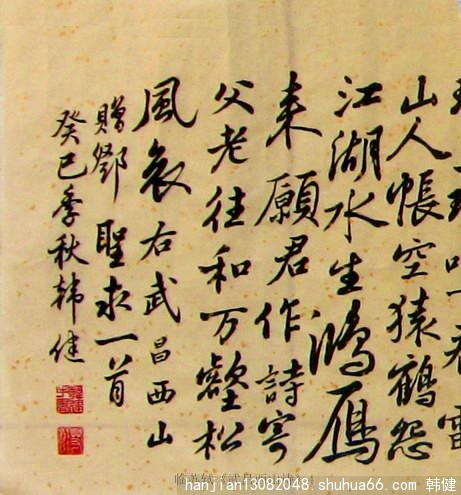 山人帳空猿鶴怨
江湖水生鴻雁
来願君作詩寄
父老往和万壑松
風哀右武昌西山
贈鄧聖求一首
癸巳季秋韩健
hanjian13082048. shuhua66. com 韩健